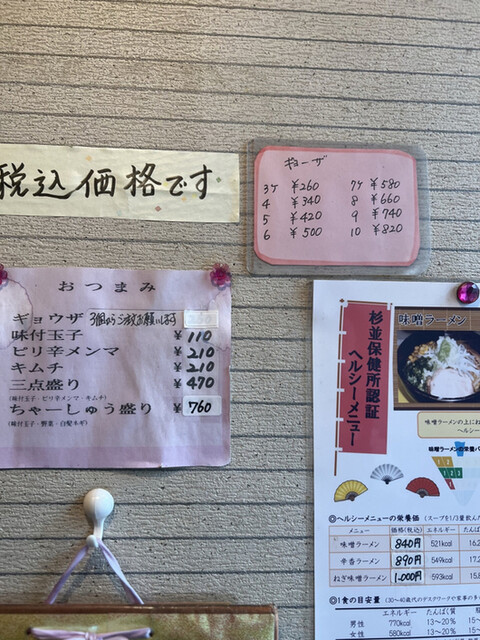 税込価格です
ギョーザ
3ケ ¥260 7ケ ¥580
4 ¥340 8 ¥660
5 ¥420 9 ¥740
6 ¥500 10 ¥820
おつまみ
ギョウザ 3個からご注文お願いします
味付玉子 ¥110
ピリ辛メンマ ¥210
キムチ ¥210
三点盛り ¥470
(味付玉子・ピリ辛メンマ・キムチ)
ちゃーしゅう盛り ¥760
(味付玉子・野菜・白髪ネギ)
杉並保健所認証
ヘルシーメニュー
味噌ラーメン
味噌ラーメンの上にね
ヘルシ
味噌ラーメンの栄養バ
◎ヘルシーメニューの栄養価 (スープを1/3量飲んだ
メニュー 価格(税込) エネルギー たんぱ
味噌ラーメン 840円 521kcal 16.2
辛香ラーメン 890円 549kcal 17.2
ねぎ味噌ラーメン 1,000円 593kcal 15.8
◎1食の目安量 (30〜40歳代のデスクワークや家事の多
エネルギー たんぱく質
男性 770kcal 13〜20% 15〜
女性 580kcal 13〜20% 15〜